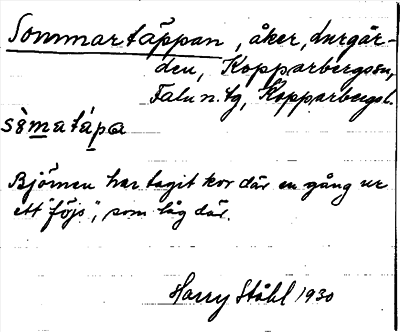 Sommartäppan, åker, Lurgår-
den, Kopparbergssn,
Falu n. tg, Kopparbergsl.
sò̀matápa
Björnen har tagit kor där en gång ur
ett "föjs", som låg där.
Harry Ståhl 1930